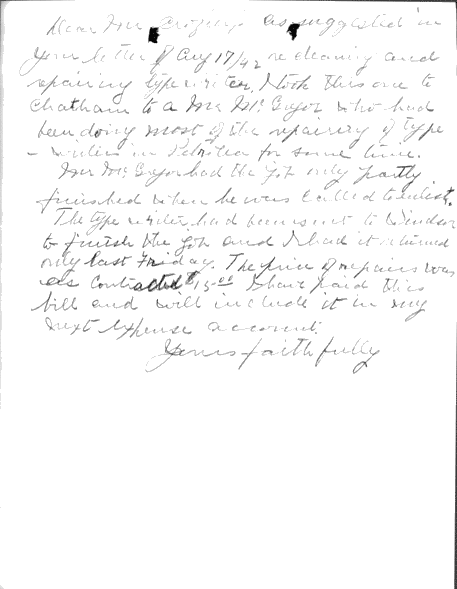 Dear Mr as suggested in
your letter of Aug 17/42 re cleaning and
repairing typewriter, I took this one to
Chatham to a Mr McGregor who had
been doing most of the repairing of type
- writers in Petrolea for some time.
Mr McGregor had the job only partly
finished when he was called to enlist.
The typewriter had been sent to Windsor
to finish the job and I had it returned
only last Friday. The price of repairs was
as contracted $15.00 I have paid this
bill and will include it in my
next expense account.
Yours faithfully